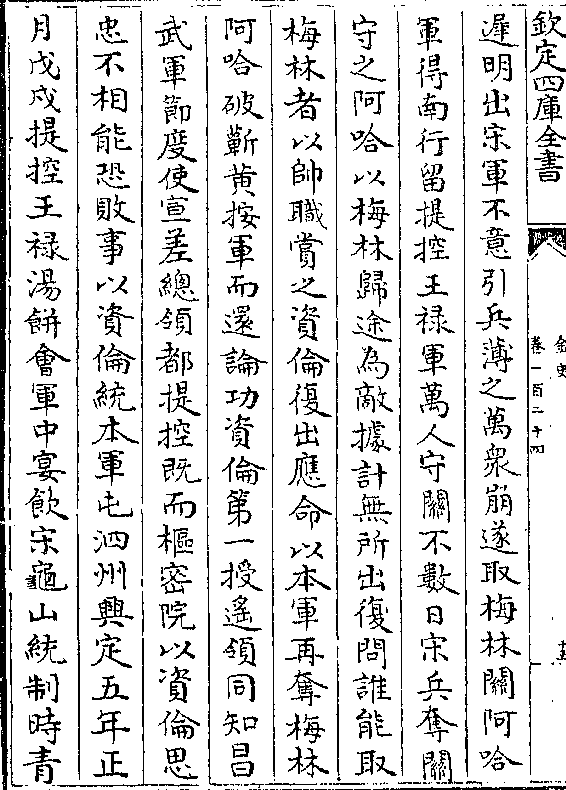 欽定四庫全書
金史
卷一百二十四
遲明出宋軍不意引兵薄之萬衆崩遂取梅林關阿哈
軍得南行留提控王禄軍萬人守關不數日宋兵奪關
守之阿哈以梅林歸途為敵據計無所出復問誰能取
梅林者以帥職賞之資倫復出應命以本軍再奪梅林
阿哈破蘄黄按軍而還論功資倫第一授遥領同知昌
武軍節度使宣差總領都提控既而樞密院以資倫思
忠不相能恐敗事以資倫統本軍屯泗州興定五年正
月戊戌提控王禄湯餅會軍中宴飲宋龜山統制時青